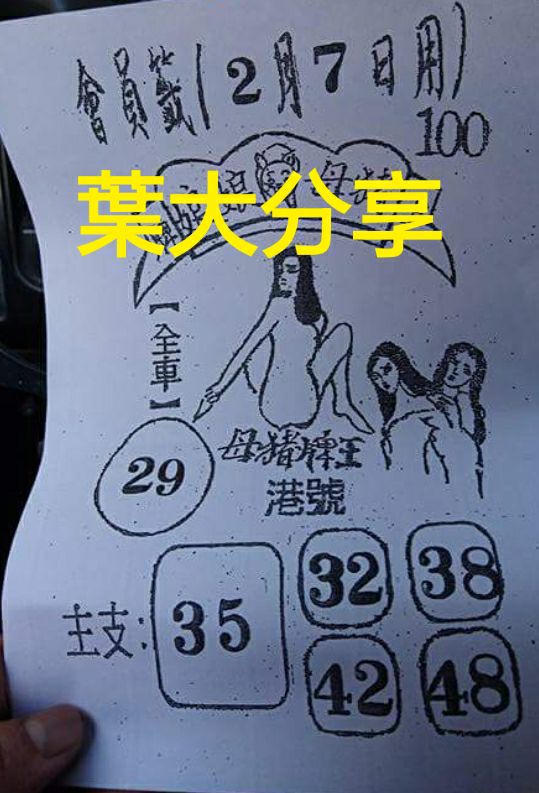 會員籤(2月7日用)
100
葉大分享
【全車】
29
母豬牌王
港號
主支:35
32 38
42 48